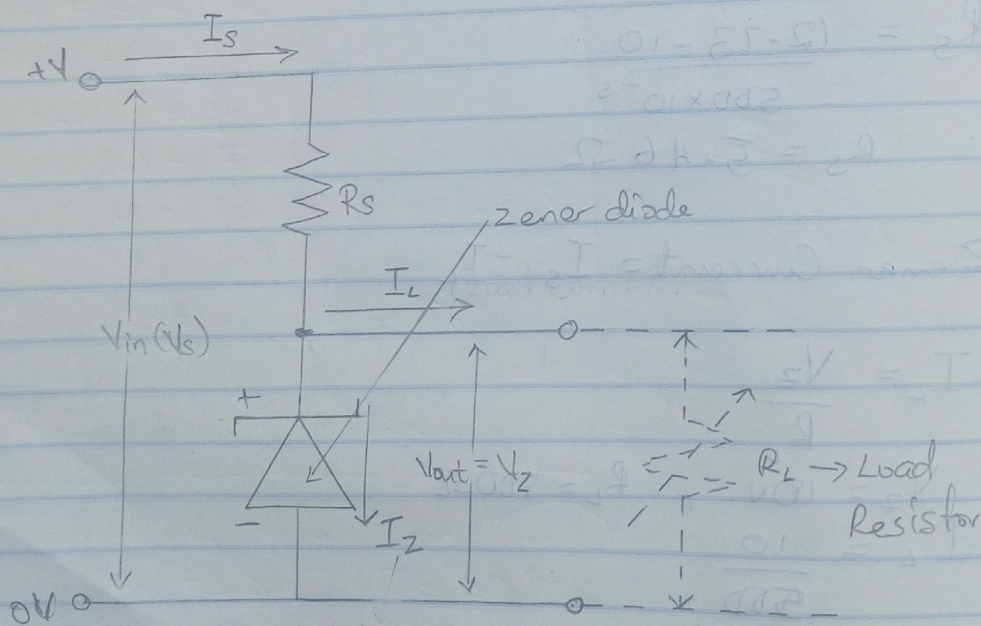 Is
+V
Rs
zener diode
IL
Vin(Vs)
+
Vout = Vz
RL → Load
Resistor
-
Iz
0V